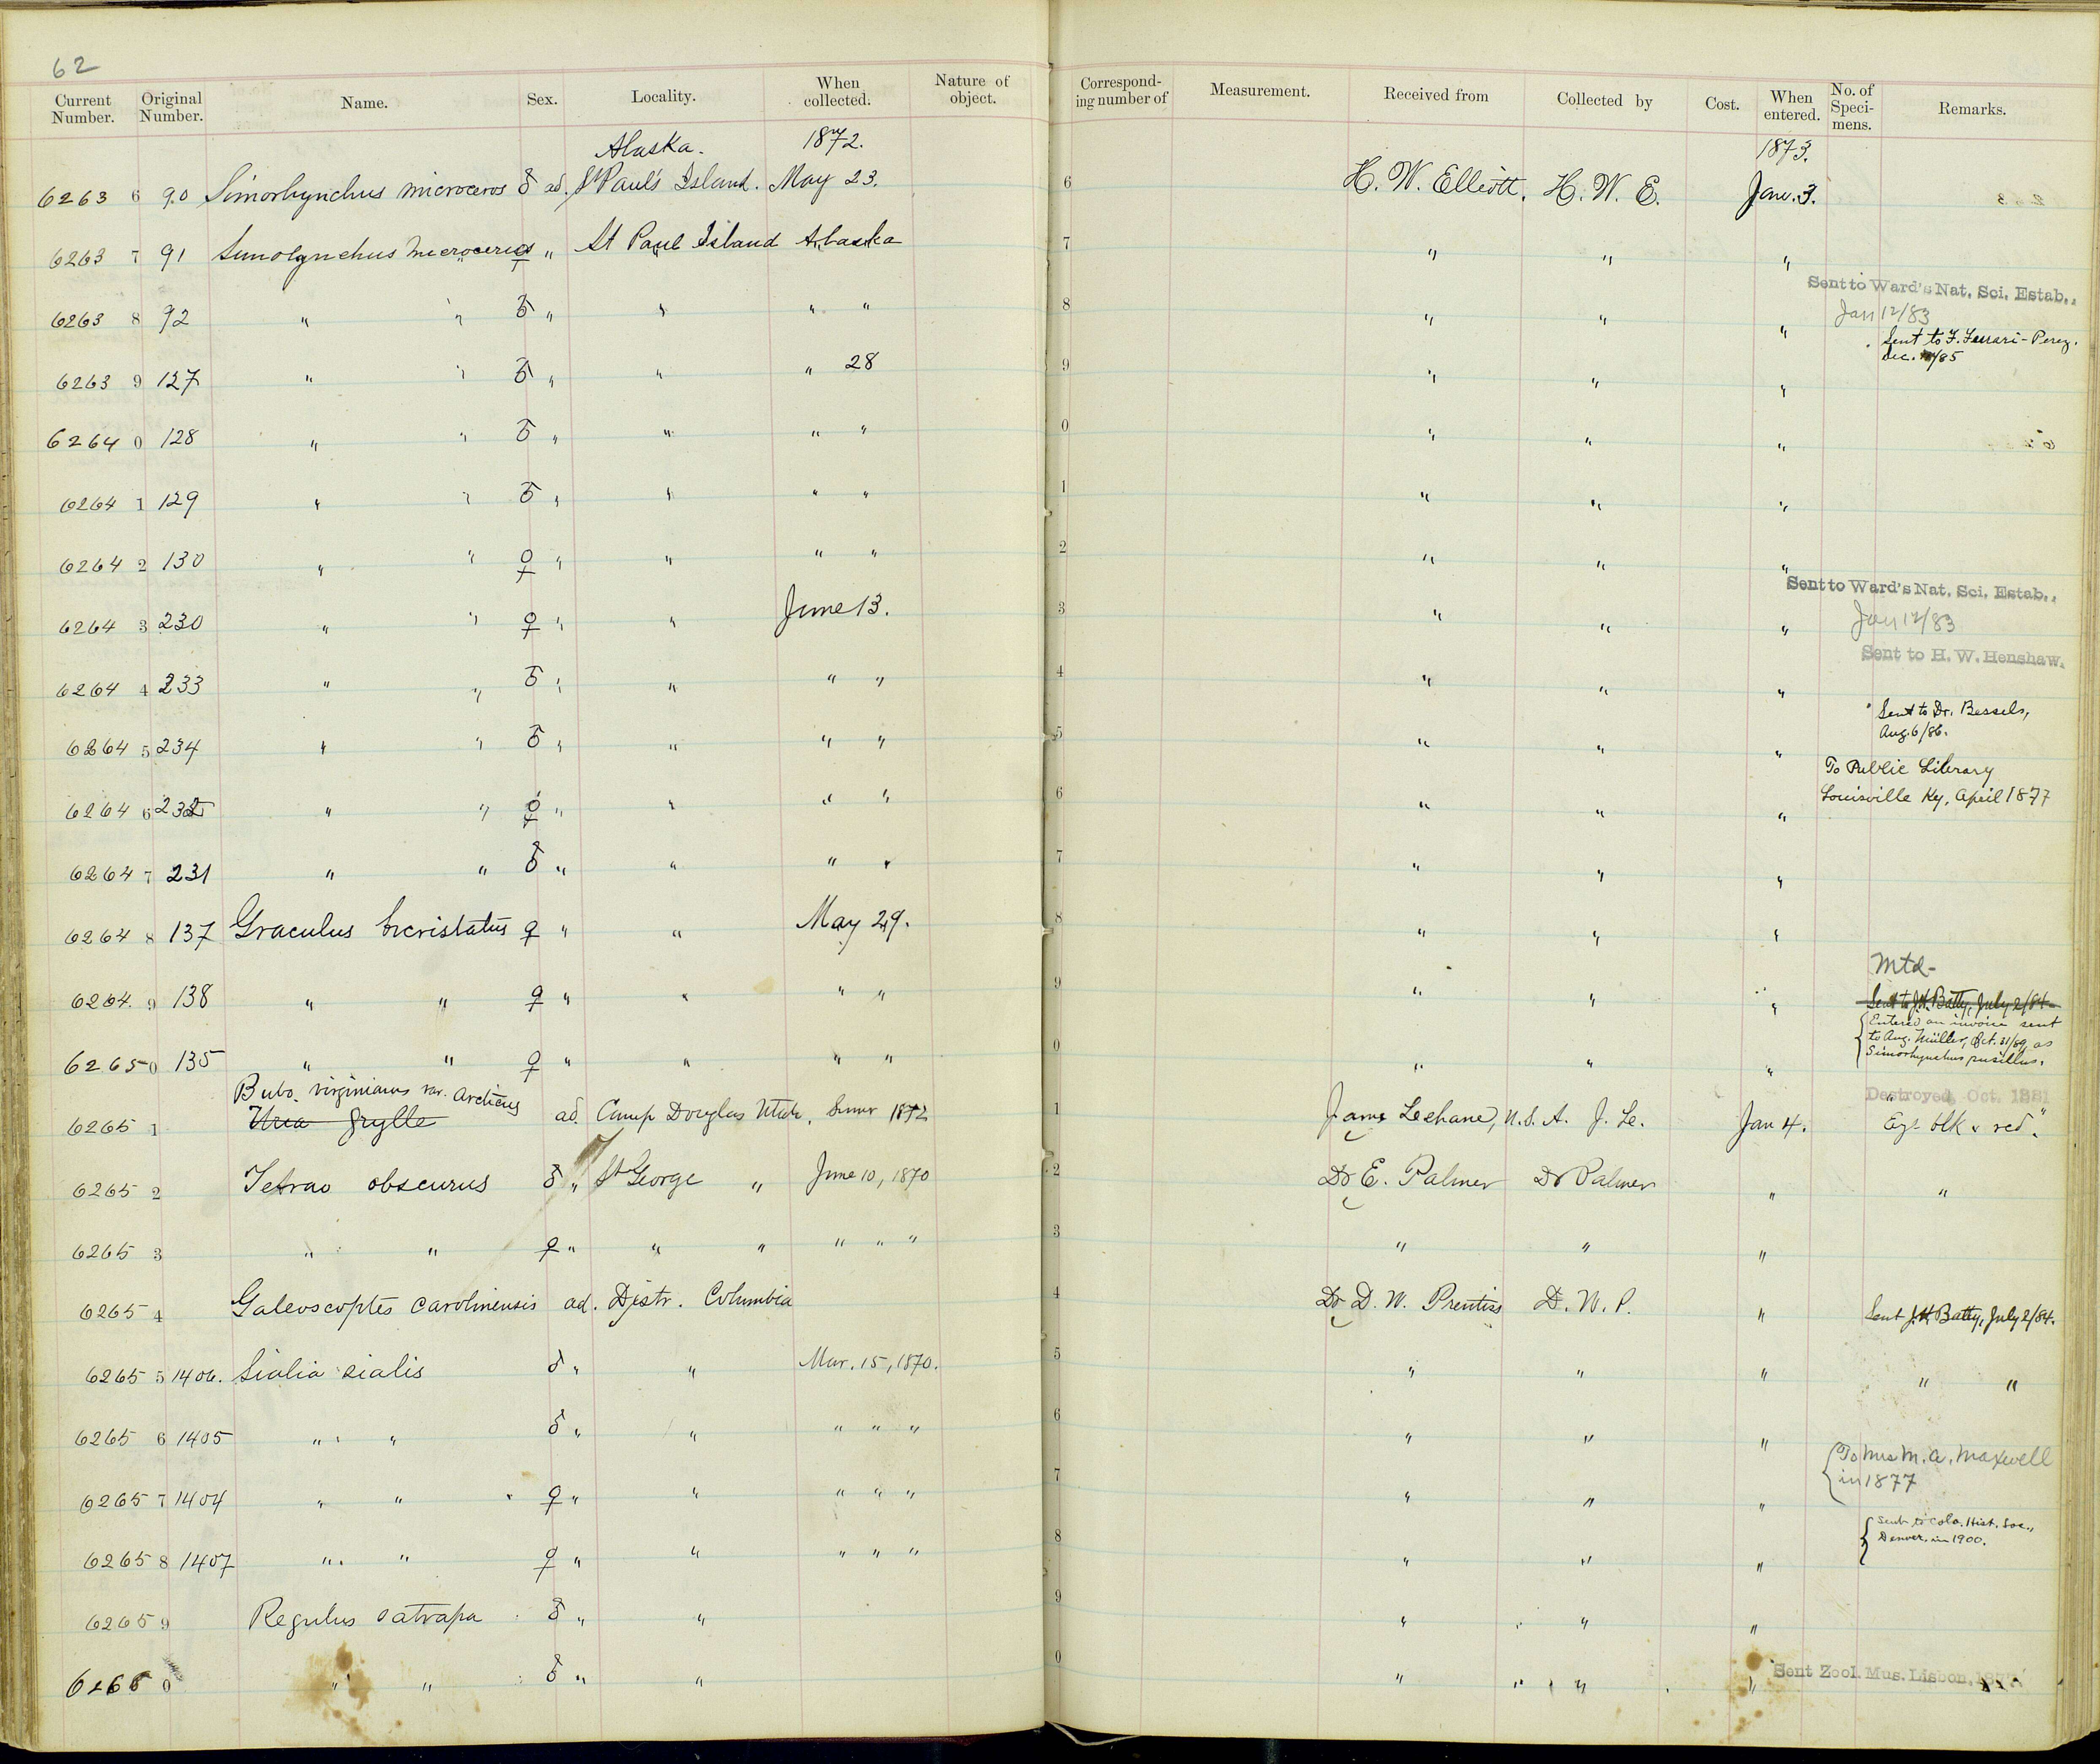 62
Current Number. Original Number. Name. Sex. Locality. When collected. Nature of object. Correspond-ing number of Measurement. Received from Collected by Cost. When entered. No. of Speci-mens. Remarks.
Alaska. 1872. 1873.
6263 6 90 Simorhynchus microceros ♂ ad. St Paul's Island. May 23. 6 H. W. Elliott. H. W. E. Jan. 3.
6263 7 91 Simolynchus microcerus ♀ " St Paul Island Alaska 7 " " "
Sent to Ward's Nat. Sci. Estab.,
6263 8 92 " " ♂ " " " " 8 " " " Jan 12/83
Sent to F. Ferrari-Perez.
Dec. /85
6263 9 127 " " ♂ " " " 28 9 " " "
6264 0 128 " " ♂ " " " " 0 " " "
6264 1 129 " " ♂ " " " " 1 " " "
6264 2 130 " " ♀ " " " " 2 " " "
Sent to Ward's Nat. Sci. Estab.,
6264 3 230 " " ♀ " " June 13. 3 " " " Jan 12/83
Sent to H. W. Henshaw.
6264 4 233 " " ♂ " " " " 4 " " "
Sent to Dr. Bessels,
Aug. 6/86.
6264 5 234 " " ♂ " " " " 5 " " "
To Public Library
Louisville Ky, April 1877
6264 6 232 " " ♀ " " " " 6 " " "
6264 7 231 " " ♂ " " " " 7 " " "
6264 8 137 Graculus bicristatus ♀ " " May 29. 8 " " "
Mtd-
6264 9 138 " " ♀ " " " " 9 " " " Sent to J.H. Batty, July 2/84
{Entered on invoice sent
to Aug. Müller, Oct. 31/89, as
Simorhynchus pusillus.
6265 0 135 " " ♀ " " " " 0 " " "
Destroyed, Oct. 1881
Bubo. virginianus var. Arcticus
6265 1 Uria grylle ad. Camp Douglas Utah. Summr 1872 1 James Lechane, U.S.A. J. Le. Jan 4. "Eyl blk & red."
6265 2 Tetrao obscurus ♂ " St George " June 10, 1870 2 Dr E. Palmer Dr Palmer " "
6265 3 " " ♀ " " " " " " 3 " " "
6265 4 Galeoscoptes carolinensis ad. Distr. Columbia 4 Dr D. W. Prentiss D. W. P. " Sent J.H. Batty, July 2/84.
6265 5 1406. Sialia sialis ♂ " " Mar. 15, 1870. 5 " " " " "
6265 6 1405 " " ♂ " " " " " 6 " " "
{To Mrs M. A. Maxwell
in 1877
6265 7 1404 " " ♀ " " " " " 7 " " "
{Sent to Colo. Hist. Soc.,
Denver, in 1900.
6265 8 1407 " " ♀ " " " " " 8 " " "
6265 9 Regulus satrapa ♂ " " 9 " " "
6266 0 " " ♂ " " 0 " " " Sent Zool. Mus. Lisbon,